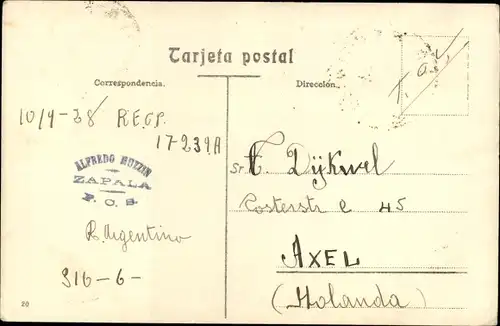 Tarjeta postal
Correspondencia.
Dirección.
T. a. V.
10/4-38 REGP.
17-239A
ALFREDO HUZZIN
ZAPALA
F. C. S.
R. Argentino
S16-6-
Sr. T. Dÿkwel
Kosterstr C 45
AXEL
(Holanda)
20